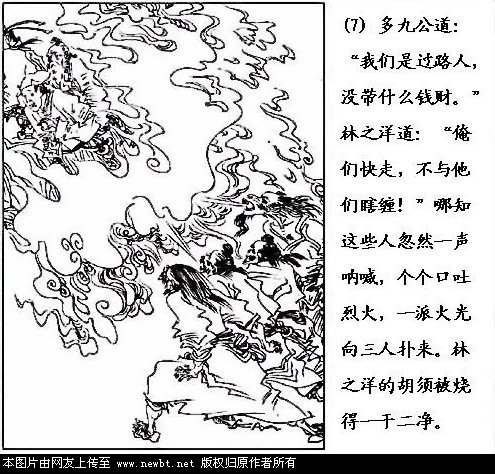 (7) 多九公道:
“我们是过路人,
没带什么钱财。”
林之洋道: “俺
们快走, 不与他
们瞎缠! ”哪知
这些人忽然一声
呐喊, 个个口吐
烈火, 一派火光
向三人扑来。林
之洋的胡须被烧
得一干二净。
本图片由网友上传至 www.newbt.net 版权归原作者所有